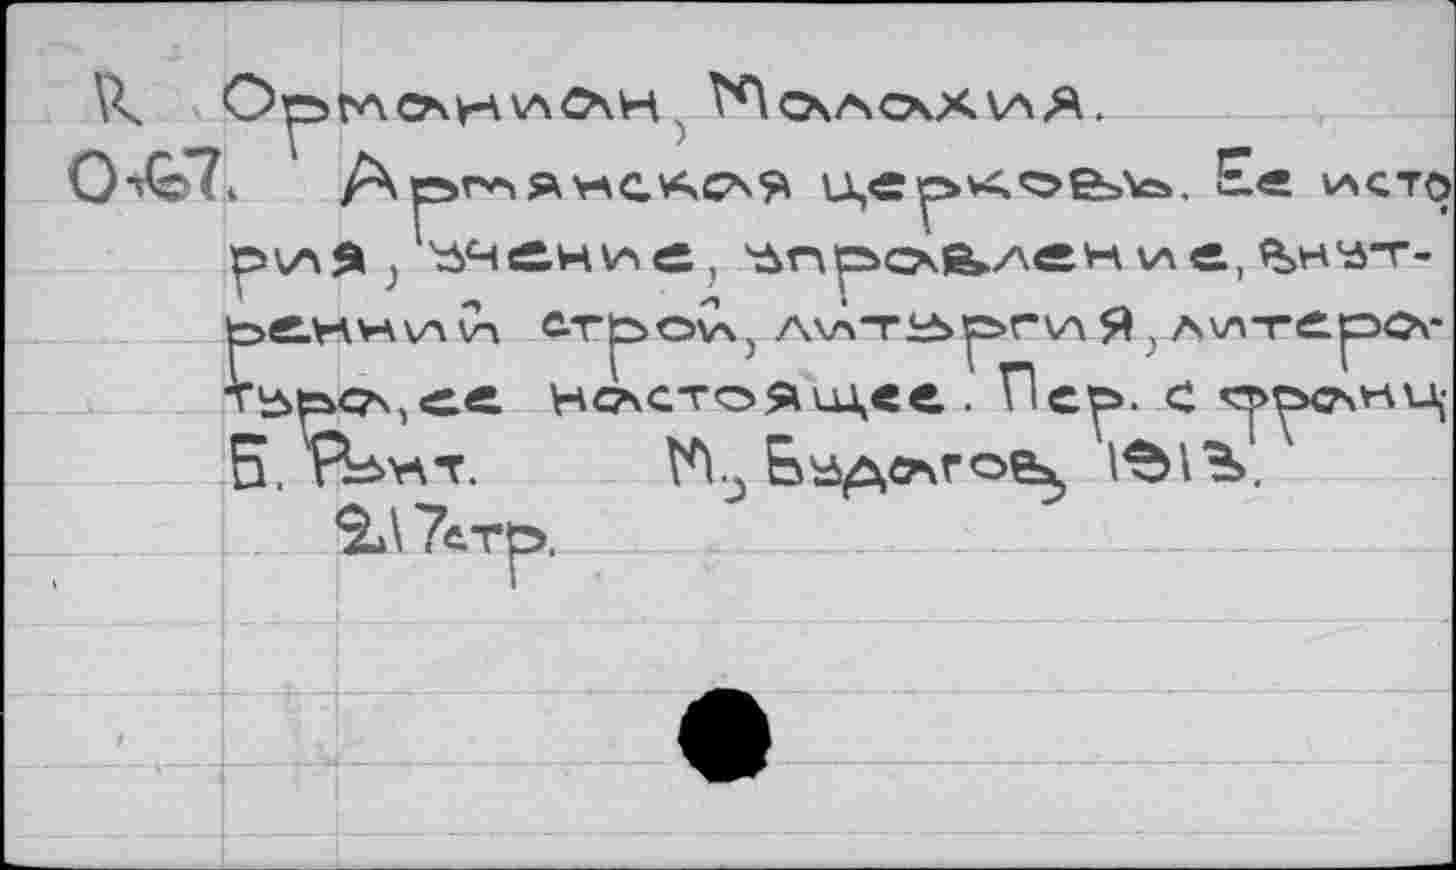 R Орманиан, Малахия.
О-67. Армянская церковь. Ее исто
рия, учение, управление, внут-
ренний строй, литургия, литера-
тура, ее настоящее. Пер. с франц.
Б. Рунт. М., Будагов, 1913.
217 стр.